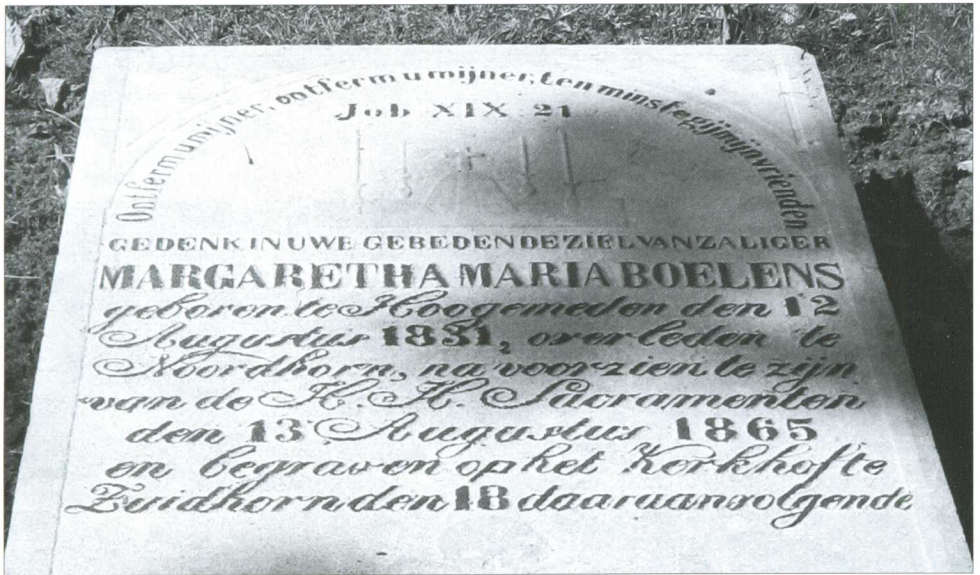 Ontferm u mijner, ontferm u mijner, ten minste gij mijn vrienden
Job XIX 21
GEDENK IN UWE GEBEDEN DE ZIEL VAN ZALIGER
MARGARETHA MARIA BOELENS
geboren te Hoogemeden den 12
Augustus 1831, overleden te
Noordhorn, na voorzien te zijn
van de H. H. Sacramenten
den 13 Augustus 1865
en begraven op het Kerkhof te
Zuidhorn den 18 daaraanvolgende